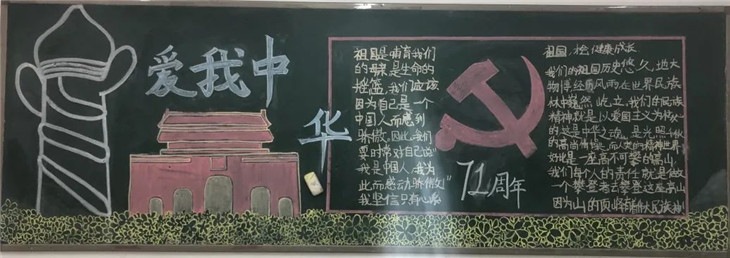 爱我中
华
祖国是哺育我们
的母亲是生命的
摇篮,我们应该
因为自己是一个
中国人而感到
骄傲。因此,我们
要时常对自己说"
我是中国人,我为
此而感动骄傲!"
我坚信只有心系
71周年
祖国,
健康成长
我们的祖国历史悠久,地大
物博经历风雨,在世界民族
林中巍然屹立,我们的民族
精神就是以爱国主义为核心
的这是中华之魂。是光照
的高尚情操,而人类的精神世界
好比是一座高不可攀的高山,
我们每个人的责任就是做
一个攀登者去攀登这座高山
因为山的顶峰
民族精神!